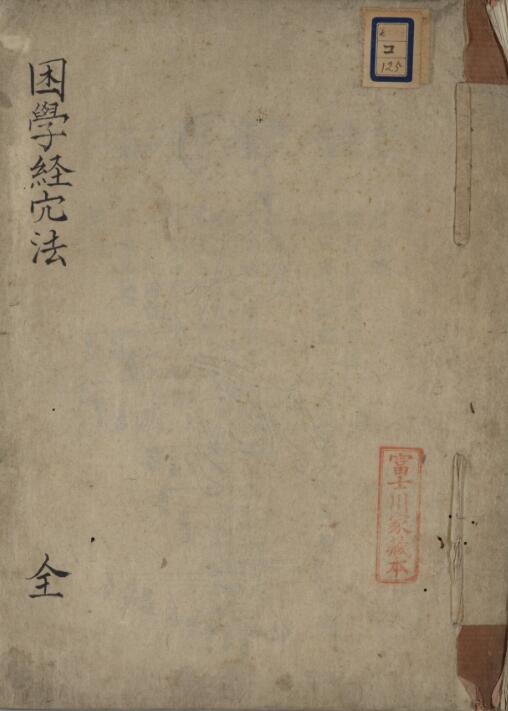 困學経穴法
全
コ
125
富士川家藏本